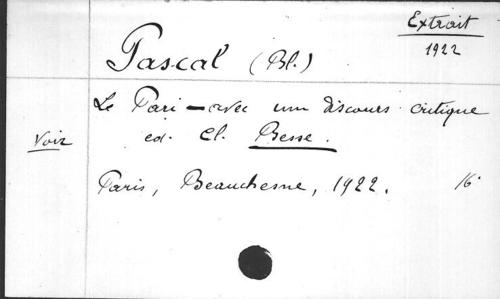 Extrait
1922
Pascal (Bl.)
Le Pari - avec un discours critique
Voir
ed. Cl. Besse.
Paris, Beauchesne, 1922. 16°